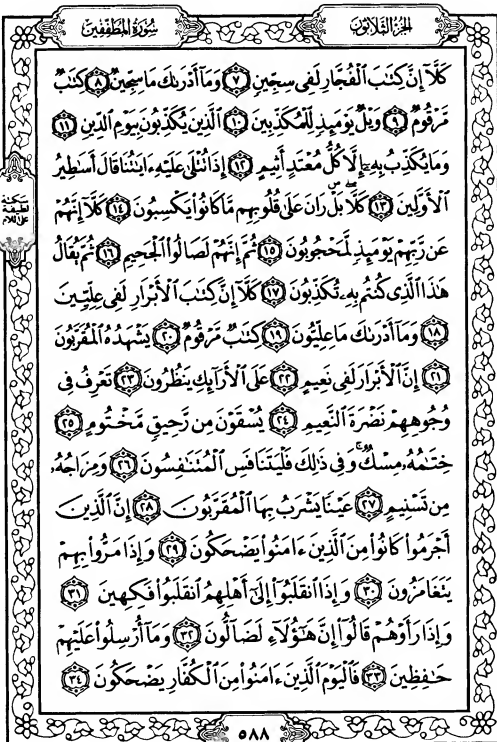 سُورَةُ المُطَفِّفِينَ
الجُزْءُ الثَّلَاثُونَ
كَلَّآ إِنَّ كِتَٰبَ ٱلْفُجَّارِ لَفِى سِجِّينٍ ﴿٧﴾ وَمَآ أَدْرَىٰكَ مَا سِجِّينٌ ﴿٨﴾ كِتَٰبٌ
مَّرْقُومٌ ﴿٩﴾ وَيْلٌ يَوْمَئِذٍ لِّلْمُكَذِّبِينَ ﴿١٠﴾ ٱلَّذِينَ يُكَذِّبُونَ بِيَوْمِ ٱلدِّينِ ﴿١١﴾
وَمَا يُكَذِّبُ بِهِۦٓ إِلَّا كُلُّ مُعْتَدٍ أَثِيمٍ ﴿١٢﴾ إِذَا تُتْلَىٰ عَلَيْهِ ءَايَٰتُنَا قَالَ أَسَٰطِيرُ
ٱلْأَوَّلِينَ ﴿١٣﴾ كَلَّا ۖ بَلْ ۜ رَانَ عَلَىٰ قُلُوبِهِم مَّا كَانُوا۟ يَكْسِبُونَ ﴿١٤﴾ كَلَّآ إِنَّهُمْ
عَن رَّبِّهِمْ يَوْمَئِذٍ لَّمَحْجُوبُونَ ﴿١٥﴾ ثُمَّ إِنَّهُمْ لَصَالُوا۟ ٱلْجَحِيمِ ﴿١٦﴾ ثُمَّ يُقَالُ
هَٰذَا ٱلَّذِى كُنتُم بِهِۦ تُكَذِّبُونَ ﴿١٧﴾ كَلَّآ إِنَّ كِتَٰبَ ٱلْأَبْرَارِ لَفِى عِلِّيِّينَ
﴿١٨﴾ وَمَآ أَدْرَىٰكَ مَا عِلِّيُّونَ ﴿١٩﴾ كِتَٰبٌ مَّرْقُومٌ ﴿٢٠﴾ يَشْهَدُهُ ٱلْمُقَرَّبُونَ
﴿٢١﴾ إِنَّ ٱلْأَبْرَارَ لَفِى نَعِيمٍ ﴿٢٢﴾ عَلَى ٱلْأَرَآئِكِ يَنظُرُونَ ﴿٢٣﴾ تَعْرِفُ فِى
وُجُوهِهِمْ نَضْرَةَ ٱلنَّعِيمِ ﴿٢٤﴾ يُسْقَوْنَ مِن رَّحِيقٍ مَّخْتُومٍ ﴿٢٥﴾
خِتَٰمُهُۥ مِسْكٌ ۚ وَفِى ذَٰلِكَ فَلْيَتَنَافَسِ ٱلْمُتَنَٰفِسُونَ ﴿٢٦﴾ وَمِزَاجُهُۥ
مِن تَسْنِيمٍ ﴿٢٧﴾ عَيْنًا يَشْرَبُ بِهَا ٱلْمُقَرَّبُونَ ﴿٢٨﴾ إِنَّ ٱلَّذِينَ
أَجْرَمُوا۟ كَانُوا۟ مِنَ ٱلَّذِينَ ءَامَنُوا۟ يَضْحَكُونَ ﴿٢٩﴾ وَإِذَا مَرُّوا۟ بِهِمْ
يَتَغَامَزُونَ ﴿٣٠﴾ وَإِذَا ٱنقَلَبُوٓا۟ إِلَىٰٓ أَهْلِهِمُ ٱنقَلَبُوا۟ فَكِهِينَ ﴿٣١﴾
وَإِذَا رَأَوْهُمْ قَالُوٓا۟ إِنَّ هَٰٓؤُلَآءِ لَضَآلُّونَ ﴿٣٢﴾ وَمَآ أُرْسِلُوا۟ عَلَيْهِمْ
حَٰفِظِينَ ﴿٣٣﴾ فَٱلْيَوْمَ ٱلَّذِينَ ءَامَنُوا۟ مِنَ ٱلْكُفَّارِ يَضْحَكُونَ ﴿٣٤﴾
سكتة
لطيفة
على اللام
٥٨٨